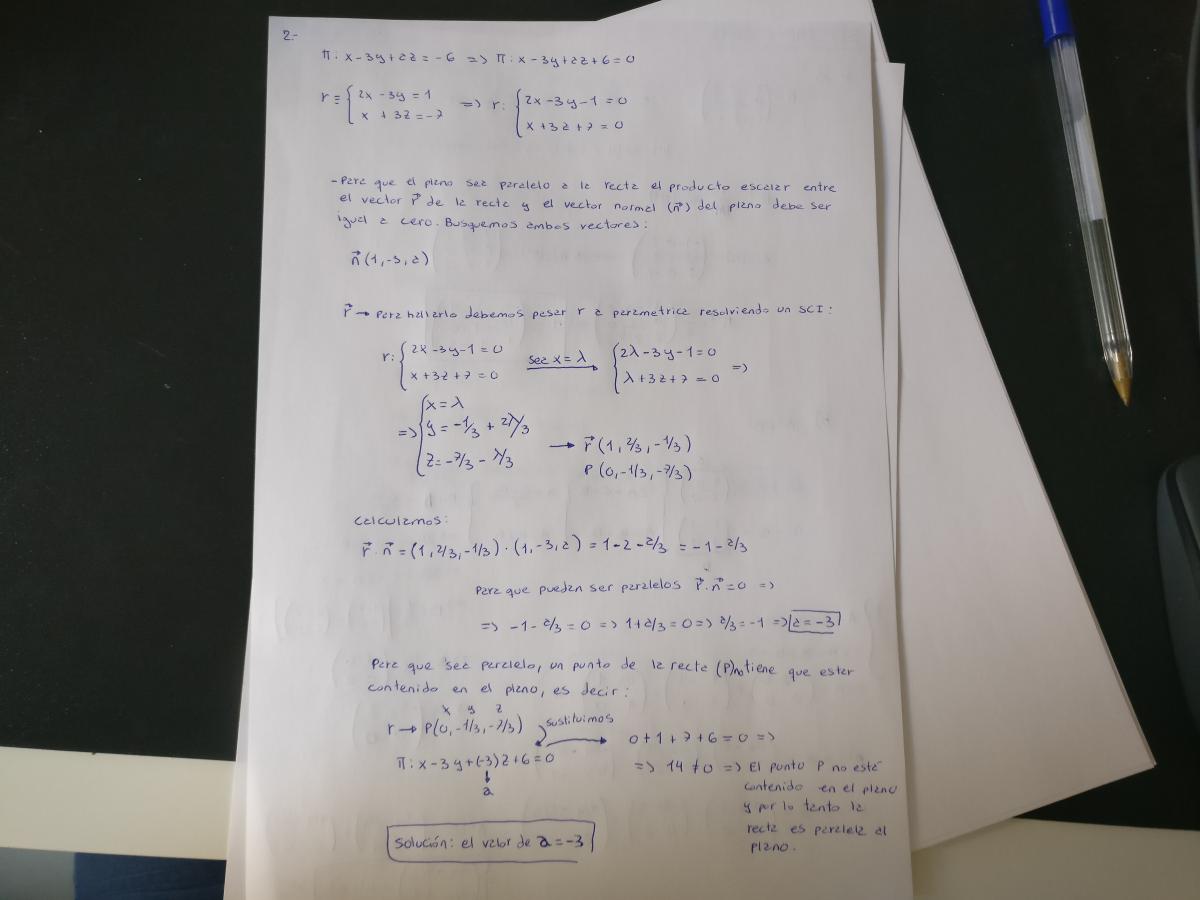 2.-
π: x-3y+az=-6 => π: x-3y+az+6=0
r≡ { 2x-3y=1 => r: { 2x-3y-1=0
x +3z=-7 x+3z+7=0
-Para que el plano sea paralelo a la recta el producto escalar entre
el vector r⃗ de la recta y el vector normal (n⃗) del plano debe ser
igual a cero. Busquemos ambos vectores:
n⃗(1,-3,a)
r⃗ → Para hallarlo debemos pasar r a parametrica resolviendo un SCI:
r: { 2x-3y-1=0 sea x=λ → { 2λ-3y-1=0 =>
x+3z+7=0 λ+3z+7=0
=> { x=λ
y=-1/3 + 2λ/3
z=-7/3 - λ/3
→ r⃗(1,2/3,-1/3)
P(0,-1/3,-7/3)
Calculamos:
r⃗·n⃗=(1,2/3,-1/3)·(1,-3,a)=1-2-a/3=-1-a/3
Para que puedan ser paralelos r⃗·n⃗=0 =>
=> -1-a/3=0 => 1+a/3=0 => a/3=-1 => a=-3
Para que sea paralelo, un punto de la recta (P) no tiene que estar
contenido en el plano, es decir:
x y z
r → P(0,-1/3,-7/3) sustituimos
π: x-3y+(-3)z+6=0
a
0+1+7+6=0 =>
=> 14≠0 => El punto P no está
contenido en el plano
y por lo tanto la
recta es paralela al
plano.
Solución: el valor de a=-3